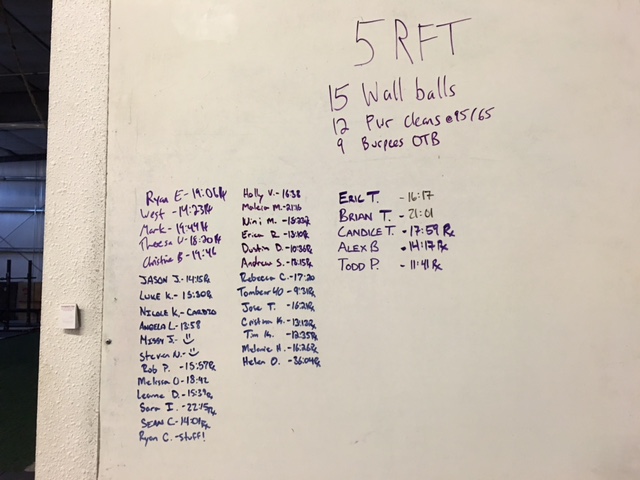 5 RFT
15 Wall balls
12 Pwr cleans @95/65
9 Burpees OTB
Ryan E - 19:06 Rx
West - 14:23 Rx
Mark - 19:49 Rx
Theresa V - 18:20 Rx
Christine B - 19:46
JASON J. - 14:15 Rx
LUKE K. - 15:30 Rx
NICOLE K. - CARDIO
ANGELA L - 13:58
MISSY J. - ☺
Steven N. - ☺
Rob P. - 15:57 Rx
Melissa O - 18:42
Leanne D. - 15:39 Rx
Sara I. - 22:15 Rx
SEAN C - 14:01 Rx
Ryan C. - stuff!
Holly V. - 16:38
M. - 21:16
Nini M. - 18:22 Rx
Erica R. - 13:10 Rx
Dustin D. - 10:36 Rx
Andrew S. - 18:15 Rx
Rebecca C. - 17:20
- 9:31 Rx
Jose T. - 16:21 Rx
Cristian K. - 13:12 Rx
Tim K. - 12:35 Rx
Melanie H. - 16:26 Rx
Helen O. - 36:04 Rx
ERIC T. - 16:17
BRIAN T. - 21:01
CANDICE T. - 17:59 Rx
ALEX B - 14:17 Rx
TODD P. - 11:41 Rx